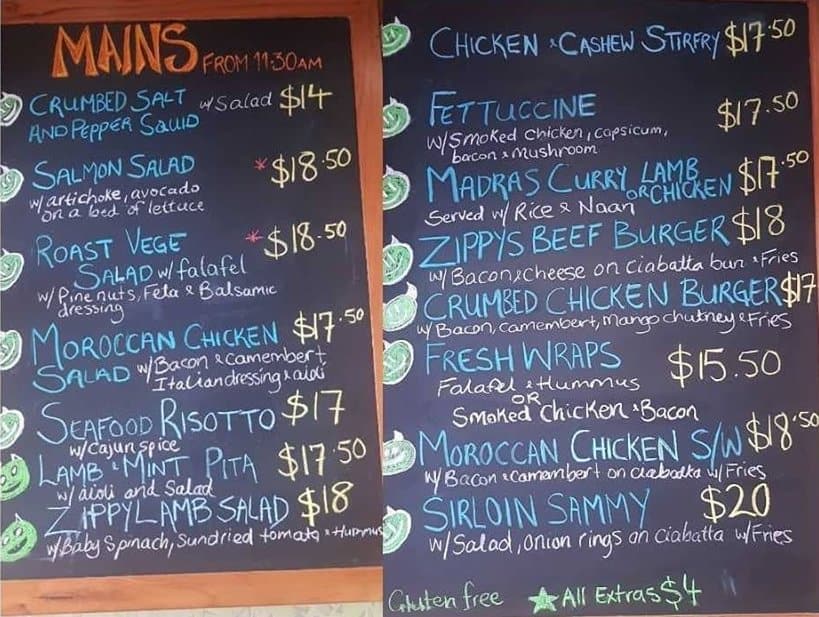 MAINS FROM 11:30AM
CRUMBED SALT w/Salad $14
AND PEPPER SQUID
SALMON SALAD *$18.50
w/artichoke, avocado
on a bed of lettuce
ROAST VEGE *$18.50
SALAD w/falafel
w/Pine nuts, Feta & Balsamic
dressing
MOROCCAN CHICKEN $17.50
SALAD w/Bacon & camembert
Italian dressing & aioli
SEAFOOD RISOTTO $17
w/cajun spice
LAMB & MINT PITA $17.50
w/aioli and Salad
ZIPPY LAMB SALAD $18
w/Baby Spinach, Sundried tomato & Hummus
CHICKEN & CASHEW STIRFRY $17.50
FETTUCCINE $17.50
w/Smoked chicken, capsicum,
bacon & mushroom
MADRAS CURRY LAMB OR CHICKEN $17.50
Served w/ Rice & Naan
ZIPPYS BEEF BURGER $18
w/Bacon & cheese on ciabatta bun & Fries
CRUMBED CHICKEN BURGER $17
w/Bacon, camembert, Mango chutney & Fries
FRESH WRAPS $15.50
Falafel & Hummus
OR
Smoked Chicken & Bacon
MOROCCAN CHICKEN S/W $18.50
w/Bacon & camembert on ciabatta w/Fries
SIRLOIN SAMMY $20
w/Salad, Onion rings on ciabatta w/Fries
Gluten free ★ All Extras $4